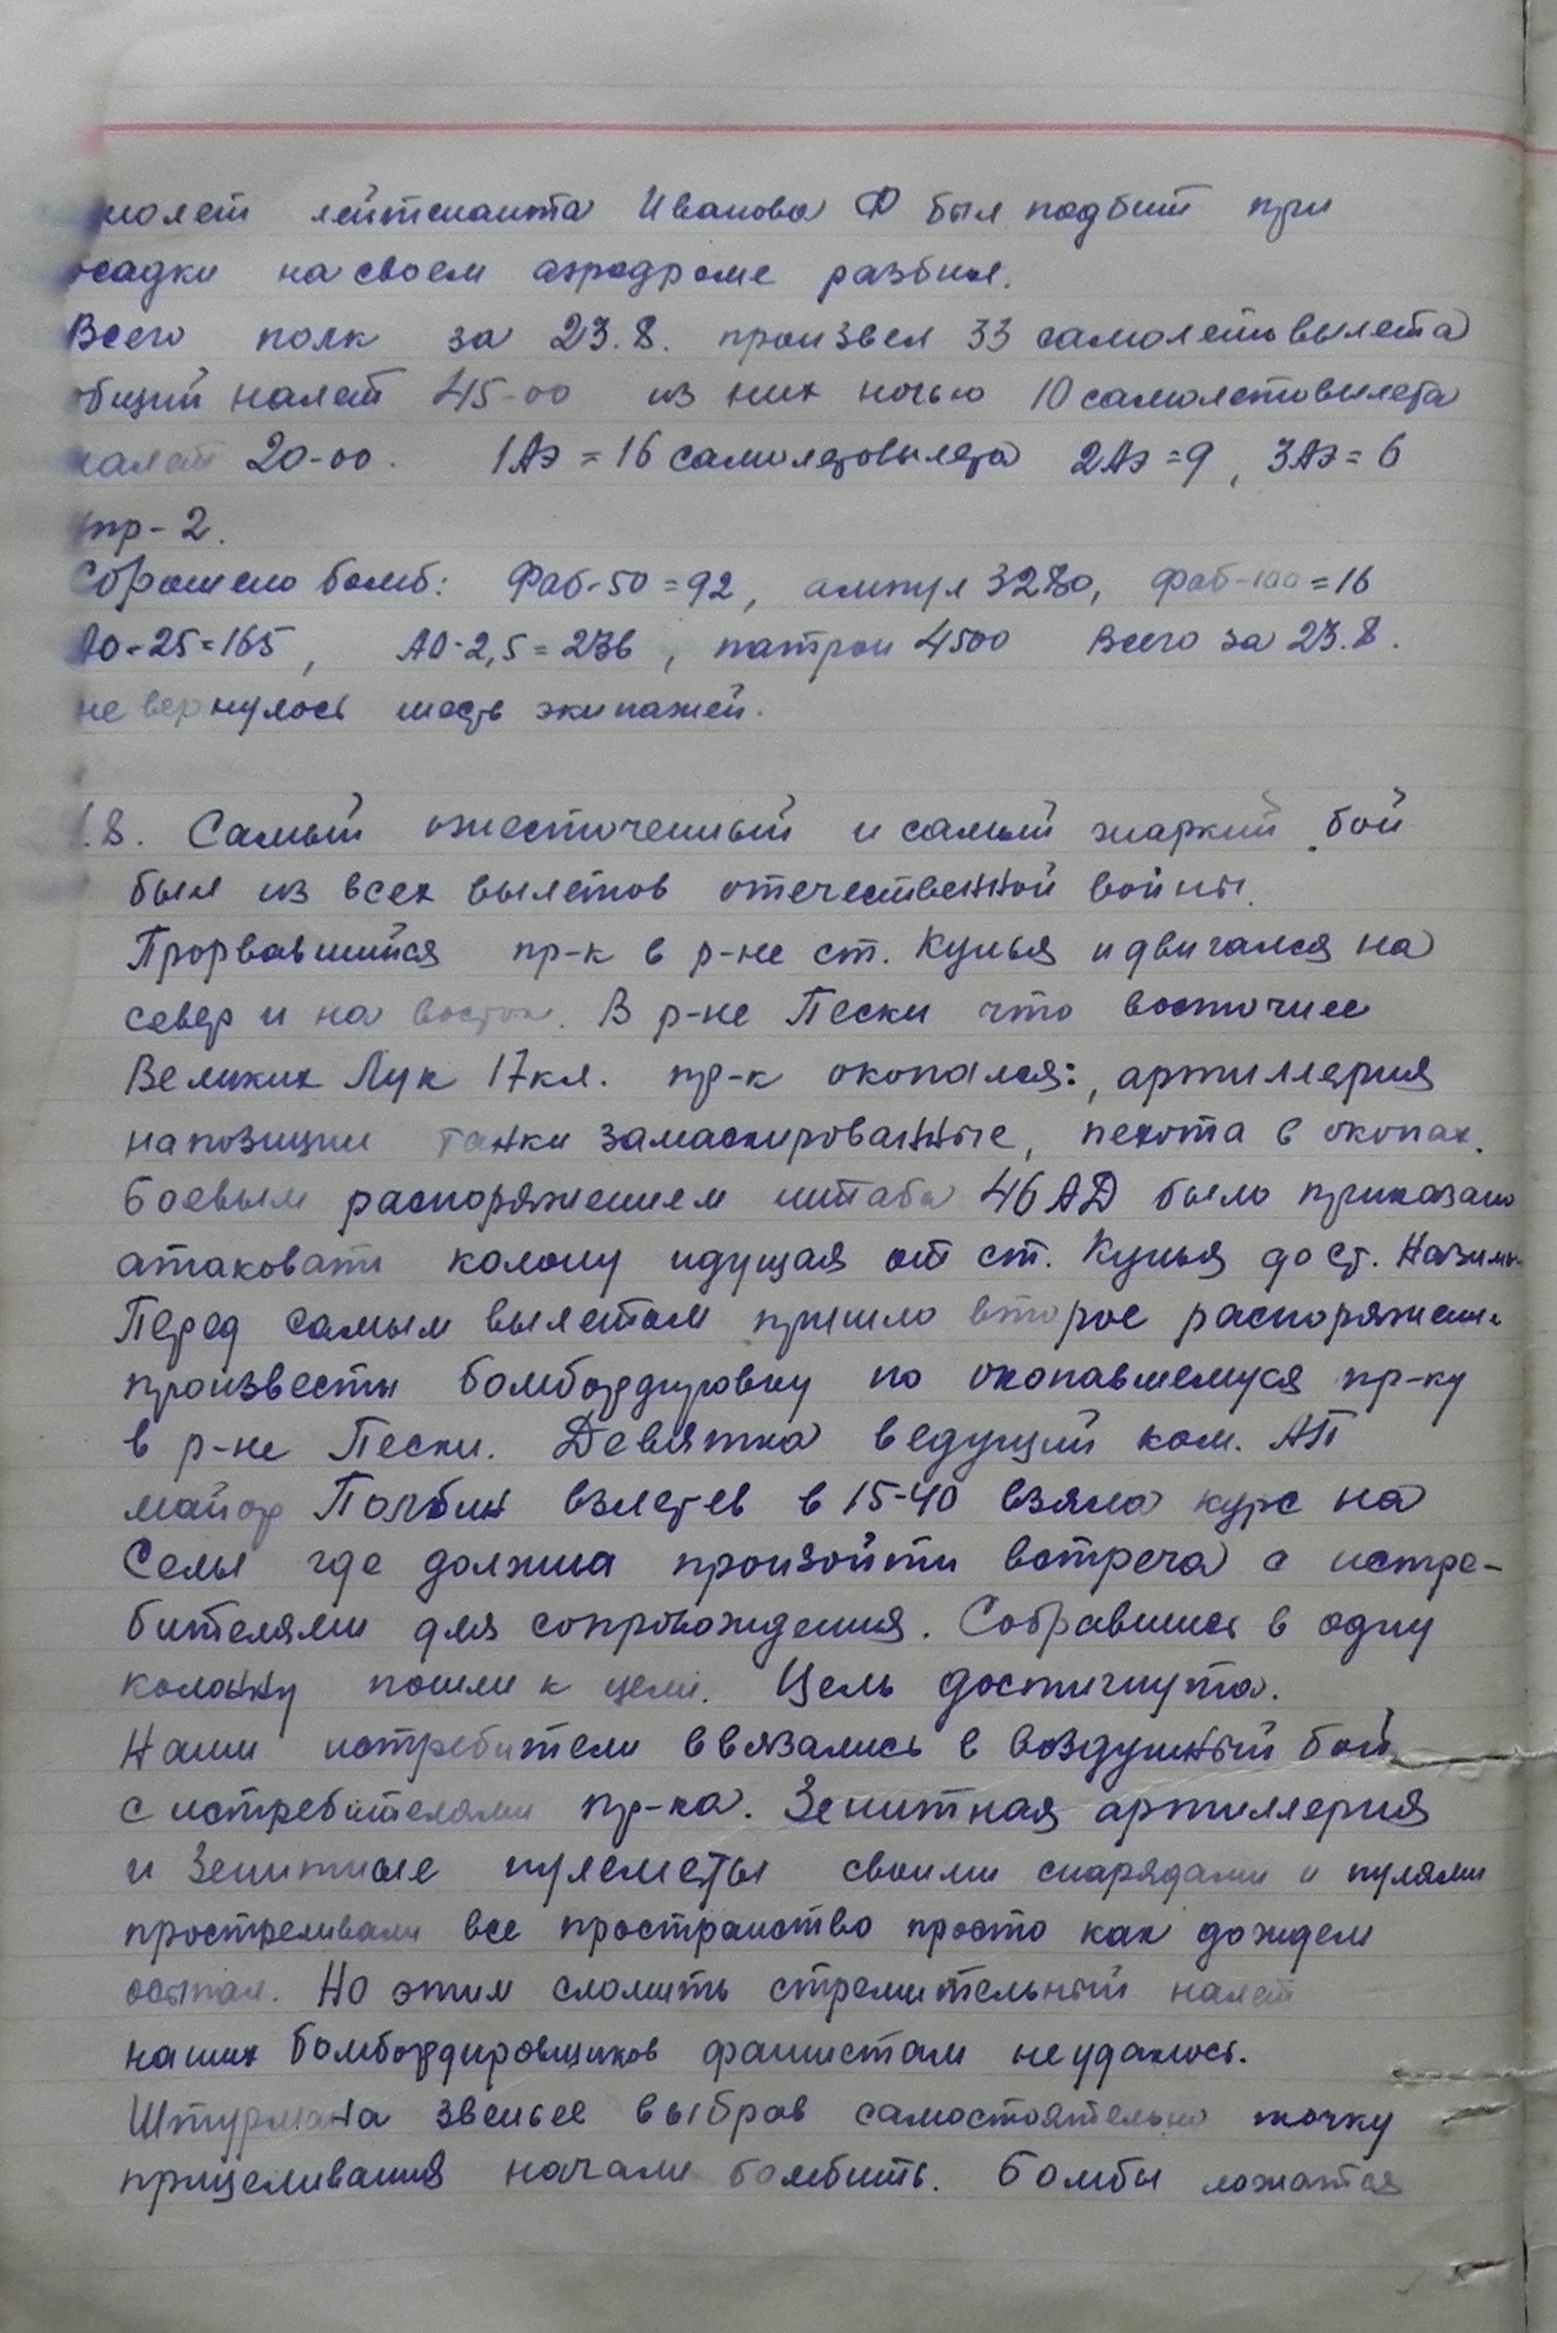 молет лейтенанта Иванова Ф был подбит при
осадки на своем аэродроме разбил.
Всего полк за 23.8. произвел 33 самолетовылета
общий налет 45-00 из них ночью 10 самолетовылета
налет 20-00. 1АЭ = 16 самолетовылета 2АЭ = 9, 3АЭ = 6
упр - 2.
Сброшено бомб: Фаб-50 = 92, ампул 3280, фаб-100 = 16
АО-25 = 165, АО-2,5 = 236, патрон 4500 Всего за 23.8.
не вернулось шесть экипажей.
.8. Самый ожесточенный и самый жаркий бой
был из всех вылетов отечественной войны.
Прорвавшийся пр-к в р-не ст. Кунья и двигался на
север и на восток. В р-не Пески что восточнее
Великих Лук 17 кл. пр-к окопался:, артиллерия
на позиции танки замаскированные, пехота в окопах.
Боевым распоряжением штаба 46 АД было приказано
атаковать колону идущая от ст. Кунья до ст. Назимо
Перед самым вылетом пришло второе распоряжени
произвести бомбордировку по окопавшемуся пр-ку
в р-не Пески. Девятка ведущий ком. АП
майор Полбин взлетев в 15-40 взяла курс на
Селы где должна произойти встреча с истре-
бителями для сопровождения. Собравшись в одну
колонну пошли к цели. Цель достигнута.
Наши истребители ввязались в воздушный бой
с истребителями пр-ка. Зенитная артиллерия
и зенитные пулеметы своими снарядами и пулями
простреливали все пространство просто как дождем
осыпал. Но этим сломить стремительный налет
наших бомбордировщиков фашистам не удалось.
Штурмана звеньев выбрав самостоятельно точку
прицеливания начали бомбить. Бомбы ложатся